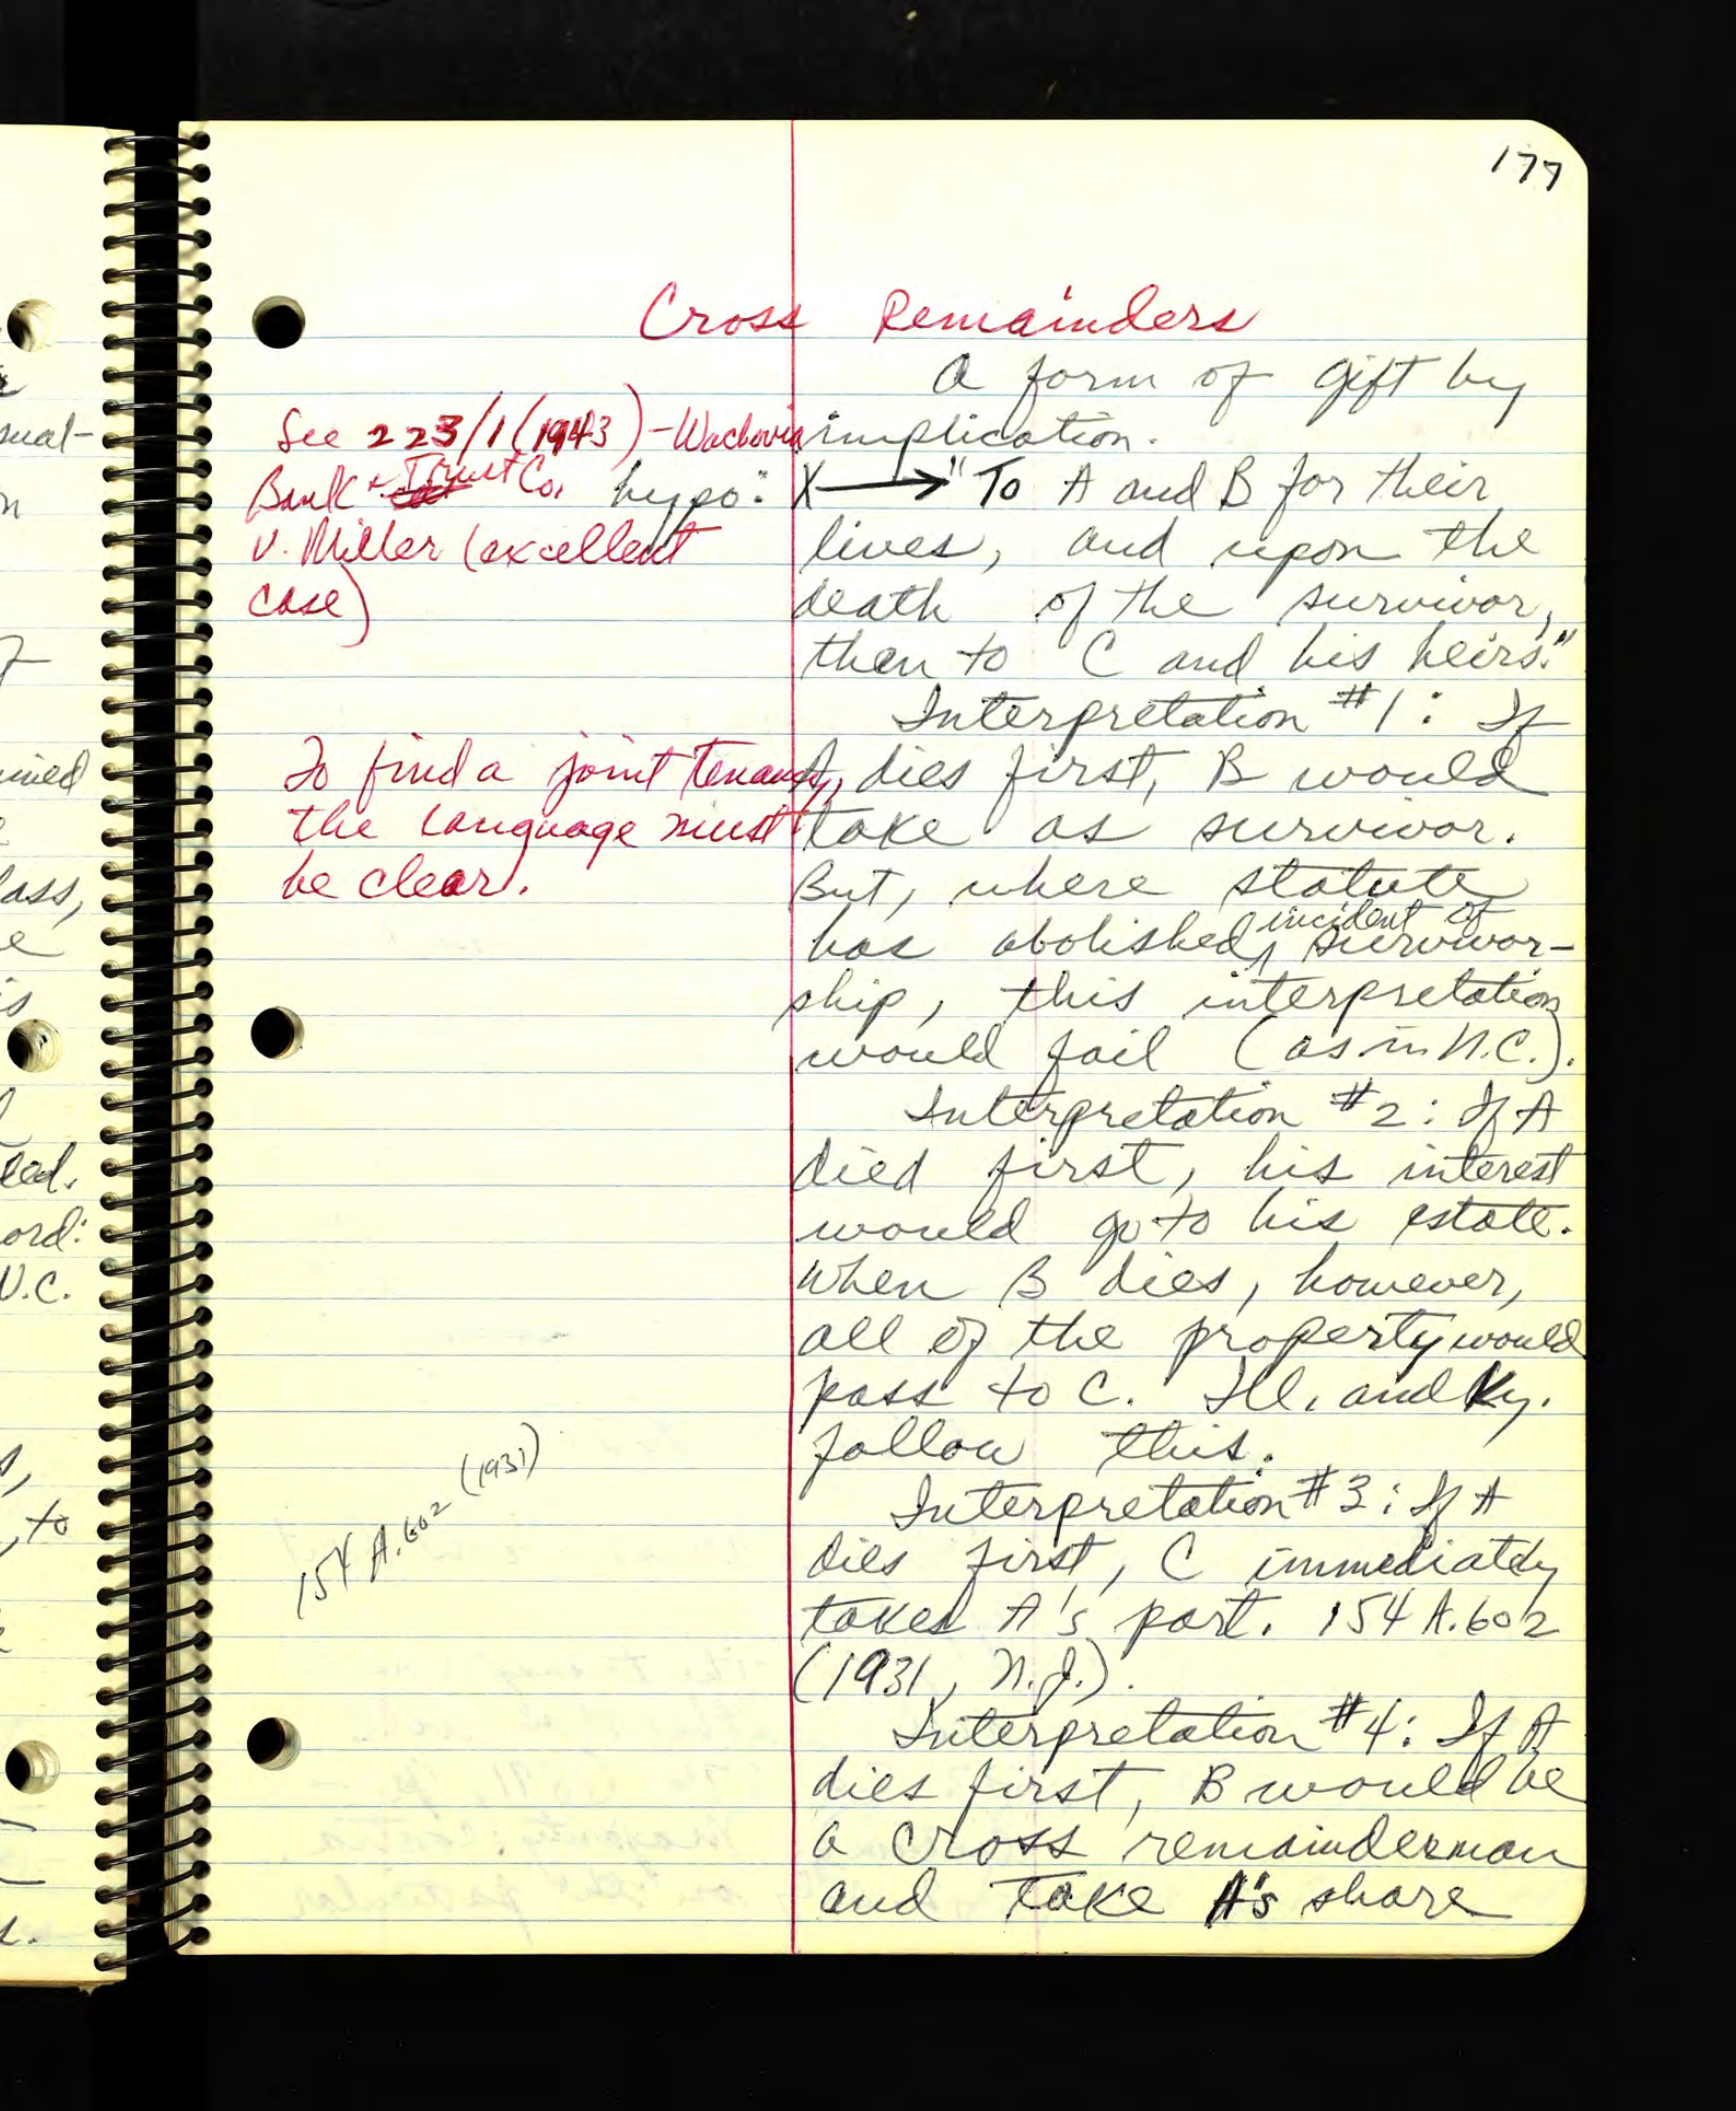 177
Cross Remainders
A form of gift by
implication.
hypo: X → "To A and B for their
lives, and upon the
death of the survivor,
then to C and his heirs."
Interpretation #1: If
A dies first, B would
take as survivor.
But, where statute
has abolished incident of survivor-
ship, this interpretation
would fail (as in N.C.).
Interpretation #2: If A
died first, his interest
would go to his estate.
When B dies, however,
all of the property would
pass to C. Ill. and Ky.
follow this.
Interpretation #3: If A
dies first, C immediately
takes A's part. 154 A. 602
(1931, N.J.).
Interpretation #4: If A
dies first, B would be
a cross remainderman
and take A's share
See 223/1 (1943) - Wachovia
Bank & Trust Co.
v. Miller (excellent
case)
To find a joint tenancy,
the language must
be clear.
154 A. 602 (1931)
sual-
n
ined
lass,
e
is
eed.
ord:
N.C.
, to
s.